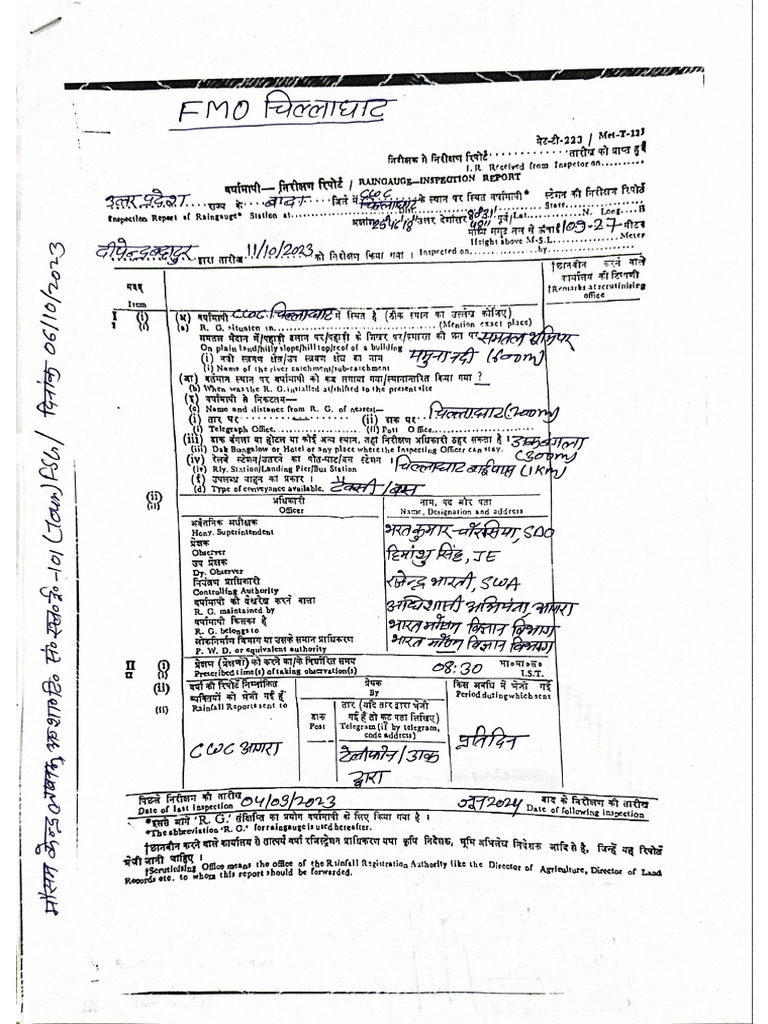 FMO चिल्लाघाट
मेट-टी-223 / Met-T-223
निरीक्षक से निरीक्षण रिपोर्ट ............ तारीख को प्राप्त हुई
I.R. Received from Inspector on............
वर्षामापी— निरीक्षण रिपोर्ट / RAINGAUGE—INSPECTION REPORT
उत्तर प्रदेश राज्य के बांदा जिले में CWC चिल्लाघाट के स्थान पर स्थित वर्षामापी* स्टेशन की निरीक्षण रिपोर्ट
Inspection Report of Raingauge* Station at............Dist............State............N. Long....E
उत्तर देशांतर पूर्व/Lat.
मध्य समुद्र तल से ऊंचाई 109.27 मीटर
Height above M-S.L............Meter
दीपेन्द्र बहादुर द्वारा तारीख 11/10/2023 को निरीक्षण किया गया । Inspected on............by............
मद
Item
†छानबीन करने वाले
कार्यालय की टिप्पणी
†Remarks of scrutinising
office
I (i) (अ) वर्षामापी CWC चिल्लाघाट में स्थित है (ठीक स्थान का उल्लेख कीजिए)
1 (i) (a) R. G. situated in............(Mention exact place)
समतल मैदान में/पहाड़ी ढलान पर/पहाड़ी के शिखर पर/इमारत की छत पर समतल भूमि पर
On plain land/hilly slope/hill top/roof of a building
(i) नदी स्त्रवण क्षेत्र/उप स्त्रवण क्षेत्र का नाम यमुना नदी (600m)
(i) Name of the river catchment/sub-catchment
(आ) वर्तमान स्थान पर वर्षामापी को कब लगाया गया/स्थानान्तरित किया गया ?
(b) When was the R. G. installed at/shifted to the present site
(इ) वर्षामापी से निकटतम-
(c) Name and distance from R. G. of nearest— चिल्लाघाट (200m)
(i) तार घर ............ (ii) डाक घर ............
(i) Telegraph Office............(ii) Post Office............
(iii) डाक बंगला या होटल या कोई अन्य स्थान, जहां निरीक्षण अधिकारी ठहर सकता है । डाकबंगला
(iii) Dak Bungalow or Hotel or any place where the Inspecting Officer can stay. (300m)
(iv) रेलवे स्टेशन/उतरने का पोत-घाट/बस स्टेशन चिल्लाघाट बाईपास (1Km)
(iv) Rly. Station/Landing Pier/Bus Station
(ई) उपलब्ध वाहन का प्रकार ।
(d) Type of conveyance available. टैक्सी/बस
(ii) अधिकारी नाम, पद और पता
(ii) Officer Name, Designation and address
अवैतनिक अधीक्षक भरत कुमार चौरसिया, SDO
Hony. Superintendent
प्रेक्षक हिमांशु सिंह, JE
Observer
उप प्रेक्षक
Dy. Observer
नियंत्रण प्राधिकारी भारती, SWA
Controlling Authority
वर्षामापी की देखरेख करने वाला अधिशासी अभियंता, आगरा
R. G. maintained by
वर्षामापी किसका है भारत मौसम विज्ञान विभाग
R. G. belongs to
लोकनिर्माण विभाग या उसके समान प्राधिकरण भारत मौसम विज्ञान विभाग
P. W. D. or equivalent authority
II (i) प्रेक्षण (प्रेक्षणों) को करने का/के निर्धारित समय 08:30 भा० मा० स०
II Prescribed time(s) of taking observation(s) I.S.T.
(ii) वर्षा की रिपोर्ट निम्नांकित प्रेषक किस अवधि में भेजी गई
व्यक्तियों को भेजी गई हैं By Period during which sent
(ii) Rainfall Reports sent to
डाक
Post
तार (यदि तार द्वारा भेजी
गई हैं तो कट पता लिखिए)
Telegram (if by telegram,
code address)
CWC आगरा टेलीफोन/डाक द्वारा प्रतिदिन
पिछले निरीक्षण की तारीख 04/09/2023 जून 2024 बाद के निरीक्षण की तारीख
Date of last inspection Date of following inspection
*इससे आगे 'R. G.' संक्षिप्ति का प्रयोग वर्षामापी के लिए किया गया है ।
*The abbreviation 'R. G.' for raingauge is used hereafter.
†छानबीन करने वाले कार्यालय से तात्पर्य वर्षा रजिस्ट्रेशन प्राधिकरण यथा कृषि निदेशक, भूमि अभिलेख निदेशक आदि से है, जिन्हें यह रिपोर्ट
भेजी जानी चाहिए ।
†Scrutinising Office means the office of the Rainfall Registration Authority like the Director of Agriculture, Director of Land
Records etc. to whom this report should be forwarded.
दिनांक 06/10/2023